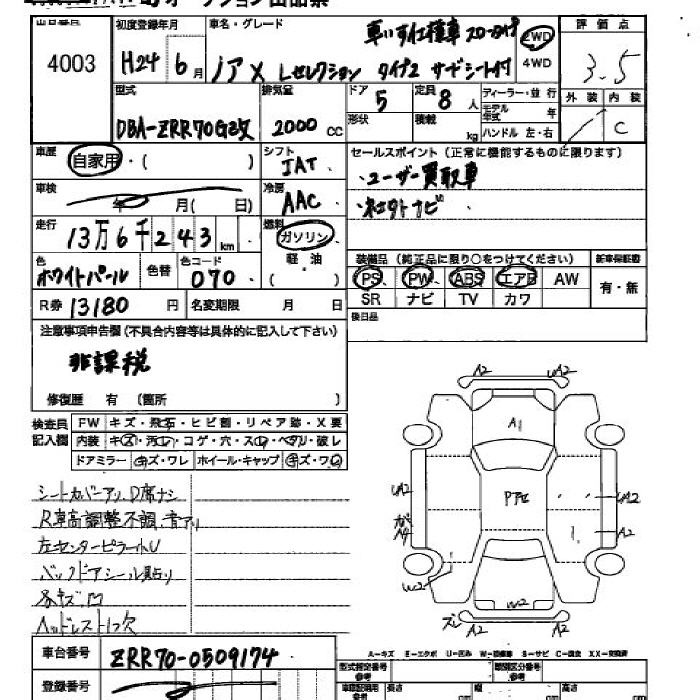 出品番号 初度登録年月 車名・グレード 車いす仕様車 スロープタイプ 2WD 評価点
4003 H24 6月 ノアX Lセレクション タイプ2 サードシート付 4WD 3.5
型式 排気量 ドア 定員 ディーラー・並行 外装 内装
DBA-ZRR70G改 2000cc 5 8人 モデル年式 年 C
形状 積載 kg ハンドル 左・右
車歴 自家用・( ) シフト IAT セールスポイント(正常に機能するものに限ります)
・ユーザー買取車
車検 年 月( 日) 冷房 AAC ・社外ナビ
走行 13万6千243km 燃料 ガソリン、
色 色替 色コード 軽油 装備品(純正品に限り○をつけてください) 新車保証書
ホワイトパール 070 PS PW ABS エアB AW 有・無
R券 13180円 名変期限 月 日 SR ナビ TV カワ
注意事項申告欄(不具合内容等は具体的に記入して下さい) 後日品
非課税
修復歴 有 (箇所 )
検査員記入欄 FW キズ・飛石・ヒビ割・リペア跡・X要
内装 キズ・汚レ・コゲ・穴・スレ・ベタリ・破レ
ドアミラー キズ・ワレ ホイール・キャップ キズ・ワレ
A2 UA2
A1
UA2 UA2
A2
A4
W2 W2
A2 A2
シートカバーアリ、D席ナシ
R車高調整不調、音アリ
左センターピラー小U
バックドアシール貼り
各キズ凹
ヘッドレスト1ツ欠
A-キズ E-エクボ U-凹み W-補修跡 S-サビ C-腐食 XX-交換済
車台番号 ZRR70-0509174 型式指定番号 参考 類別区分番号 参考
登録番号 車庫証明用 参考 長さ cm 幅 cm 高さ cm